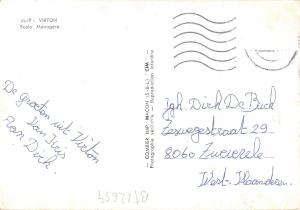 20/9 - VIRTON
Ecole Ménagère
De groeten uit Virton
Van Thijs
Aan Dirk.
COMBIER IMP. MACON (S.-&-L.) CIM
Photographie véritable - Reproduction interdite
Jgh. Dirk De Buck
Leswegestraat 29
8060 Zwevezele
West-Vlaanderen